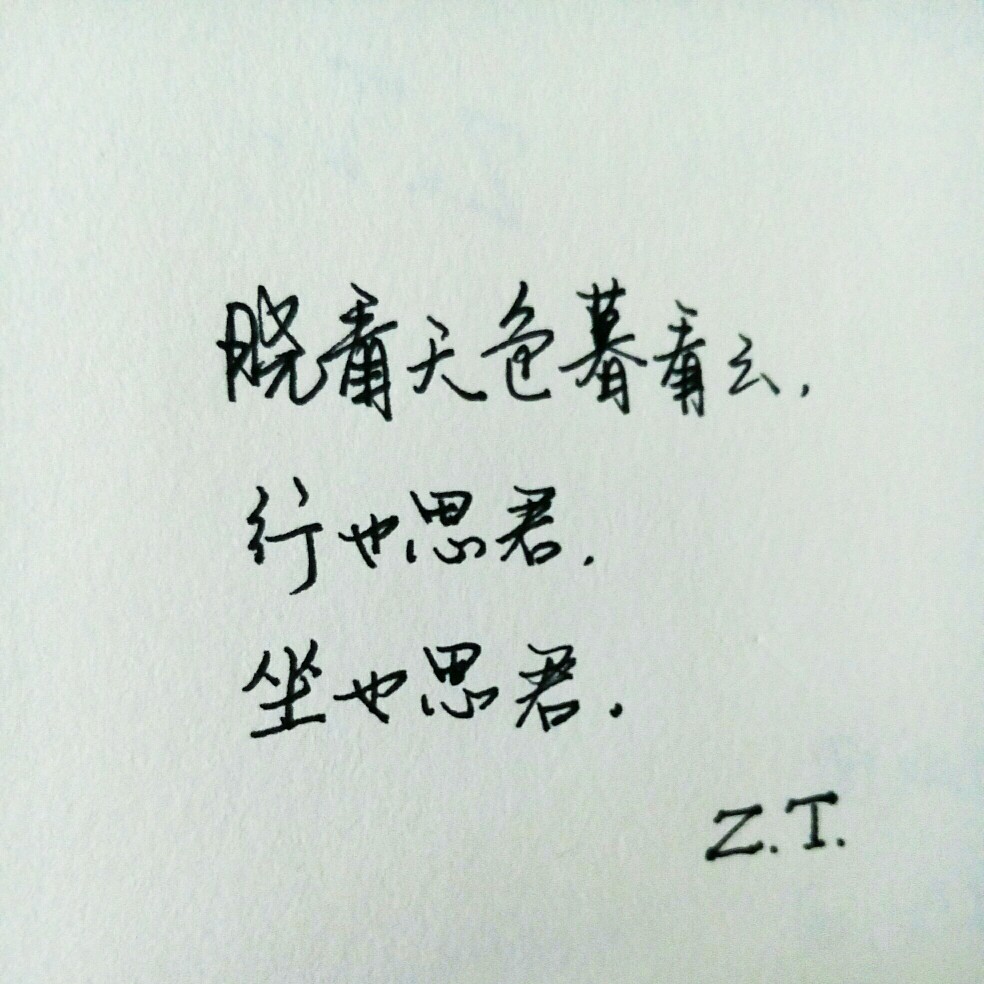 晓看天色暮看云,
行也思君.
坐也思君.
Z.T.